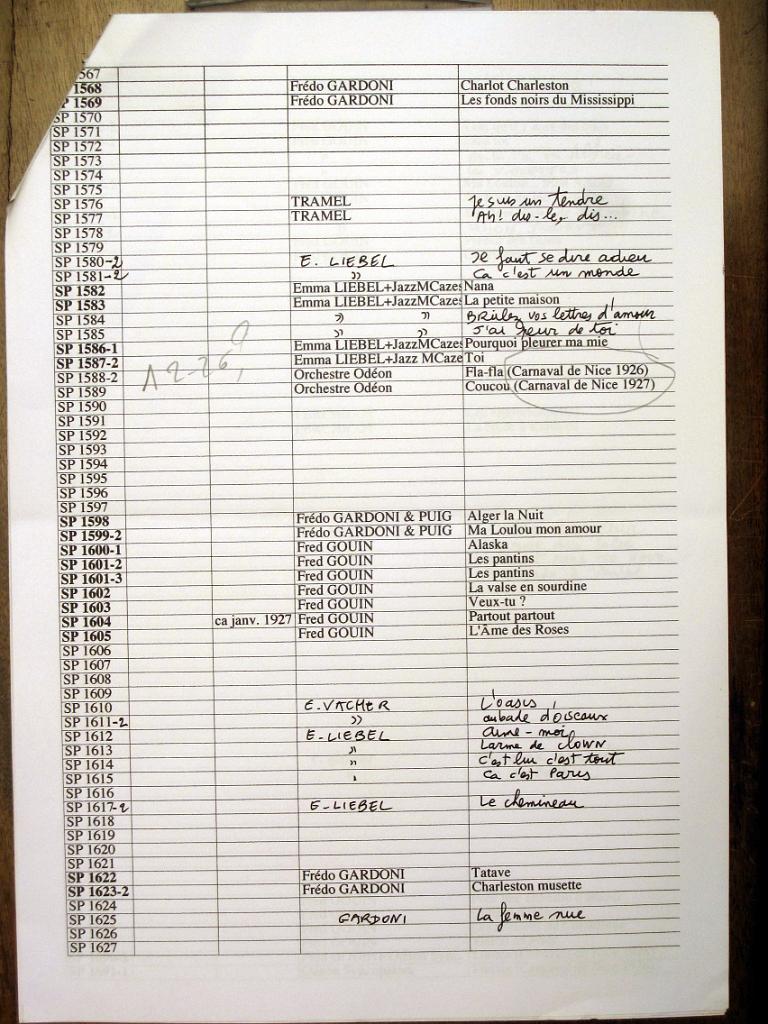 567
P 1568 Frédo GARDONI Charlot Charleston
P 1569 Frédo GARDONI Les fonds noirs du Mississippi
SP 1570
SP 1571
SP 1572
SP 1573
SP 1574
SP 1575
SP 1576 TRAMEL Je suis un tendre
SP 1577 TRAMEL Ah! dis-le, dis...
SP 1578
SP 1579
SP 1580-2 E. LIEBEL Il faut se dire adieu
SP 1581-2 " Ca c'est un monde
SP 1582 Emma LIEBEL+JazzMCazes Nana
SP 1583 Emma LIEBEL+JazzMCazes La petite maison
SP 1584 " " Brûlez vos lettres d'amour
SP 1585 " " J'ai peur de toi
SP 1586-1 Emma LIEBEL+JazzMCazes Pourquoi pleurer ma mie
SP 1587-2 Emma LIEBEL+Jazz MCaze Toi
SP 1588-2 12-26? Orchestre Odéon Fla-fla (Carnaval de Nice 1926)
SP 1589 Orchestre Odéon Coucou (Carnaval de Nice 1927)
SP 1590
SP 1591
SP 1592
SP 1593
SP 1594
SP 1595
SP 1596
SP 1597
SP 1598 Frédo GARDONI & PUIG Alger la Nuit
SP 1599-2 Frédo GARDONI & PUIG Ma Loulou mon amour
SP 1600-1 Fred GOUIN Alaska
SP 1601-2 Fred GOUIN Les pantins
SP 1601-3 Fred GOUIN Les pantins
SP 1602 Fred GOUIN La valse en sourdine
SP 1603 Fred GOUIN Veux-tu ?
SP 1604 ca janv. 1927 Fred GOUIN Partout partout
SP 1605 Fred GOUIN L'Âme des Roses
SP 1606
SP 1607
SP 1608
SP 1609
SP 1610 E. VACHER L'oasis
SP 1611-2 " aubade d'oiseaux
SP 1612 E-LIEBEL Aime-moi
SP 1613 " Larme de clown
SP 1614 " C'est lui c'est tout
SP 1615 " Ca c'est Paris
SP 1616
SP 1617-2 E-LIEBEL Le chemineau
SP 1618
SP 1619
SP 1620
SP 1621
SP 1622 Frédo GARDONI Tatave
SP 1623-2 Frédo GARDONI Charleston musette
SP 1624
SP 1625 GARDONI La femme nue
SP 1626
SP 1627